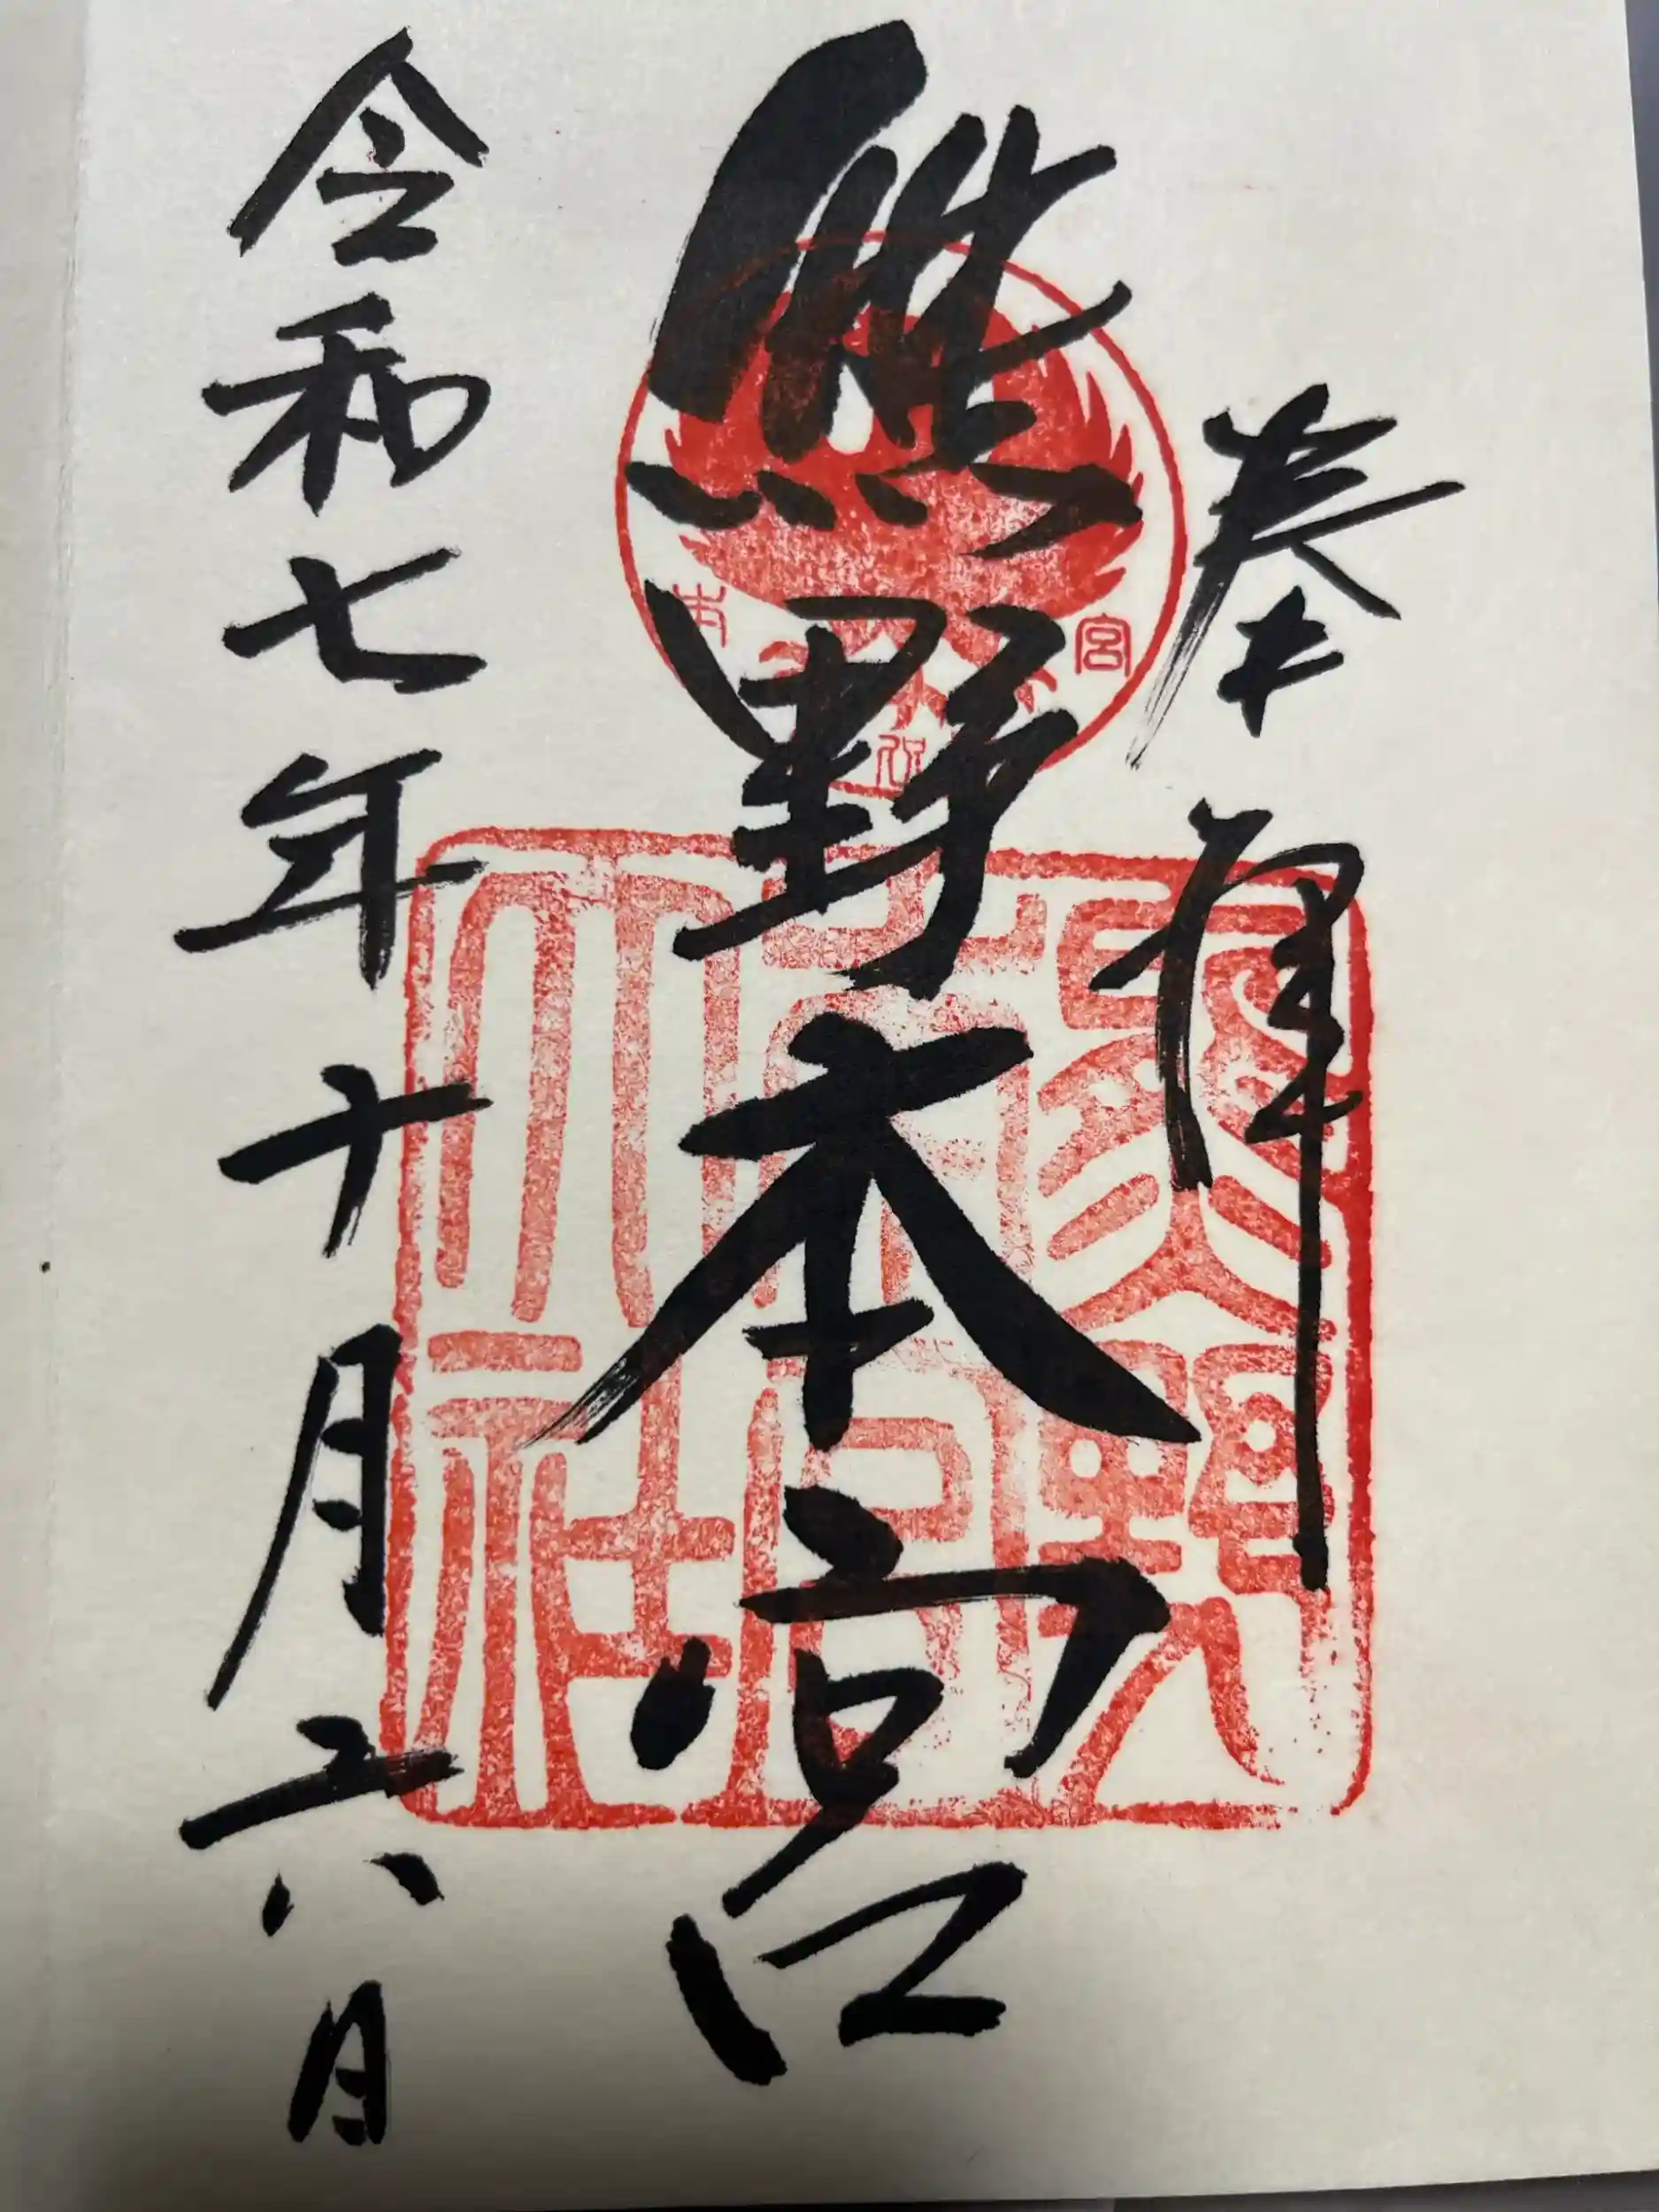 奉拝
熊野本宮
令和七年十月六日
本
宮
熊野
本宮
大社